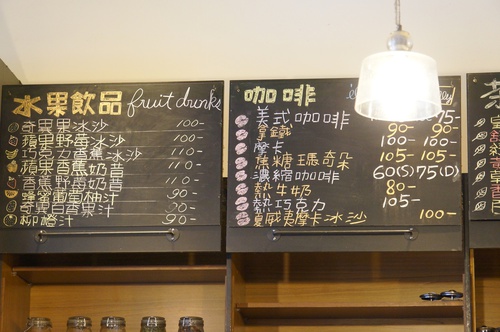 水果飲品 fruit drinks
奇異果冰沙 100-
蘋果野莓冰沙 100-
巧克力香蕉冰沙 110-
蘋果香蕉奶昔 110-
香蕉野莓奶昔 110-
蜂蜜葡萄柚汁 90-
百香果汁 20-
柳橙汁 90-
咖啡
美式咖啡 75-
拿鐵 90- 90-
摩卡 100- 100-
焦糖瑪奇朵 105- 105-
濃縮咖啡 60(S) 75(D)
熱牛奶 80-
熱巧克力 105-
夏威夷摩卡冰沙 100-
茶